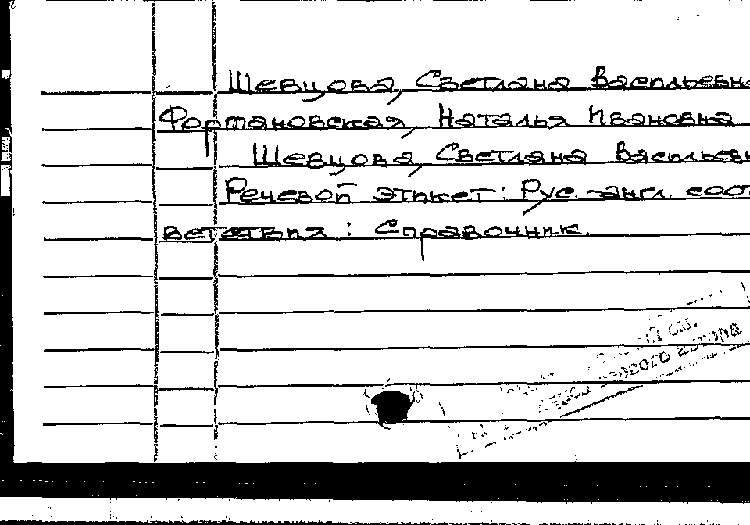 Шевцова, Светлана Васильевна
Формановская, Наталья Ивановна
Шевцова, Светлана Васильевн
Речевой этикет: Рус.-англ. соот
ветствия: Справочник.
см.
первого автора